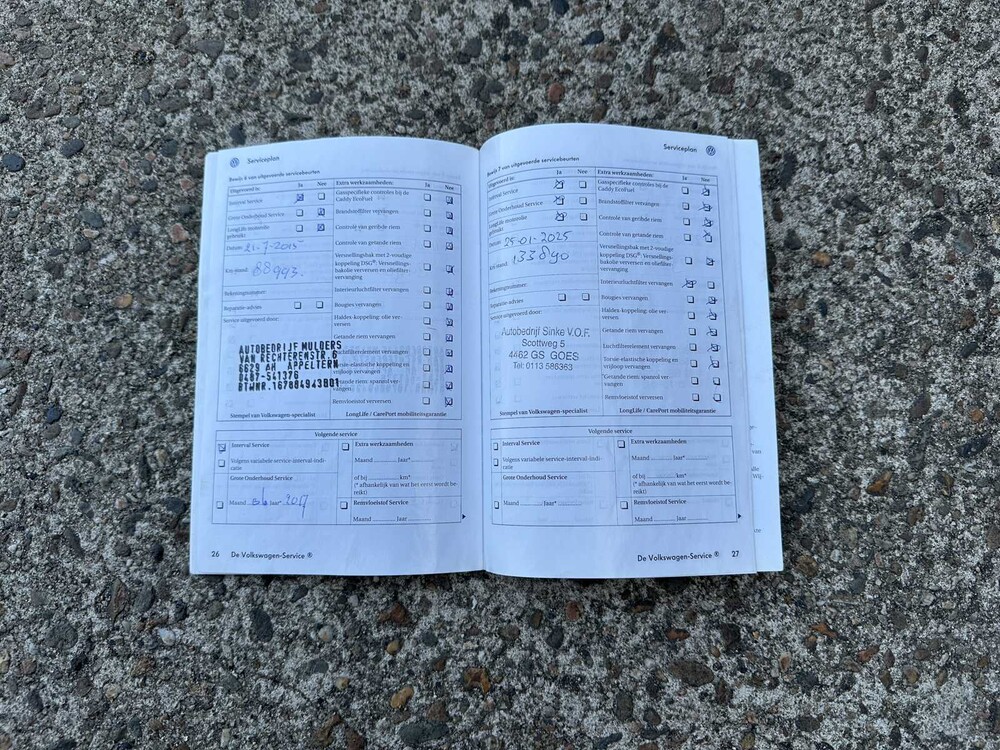 Serviceplan
Bewijs 6 van uitgevoerde servicebeurten
Uitgevoerd is: Ja Nee
Interval Service
Grote Onderhoud Service
LongLife motorolie
gebruikt
Datum: 21-7-2015
Km-stand: 88993.
Rekeningnummer:
Reparatie-advies
Service uitgevoerd door:
AUTOBEDRIJF MULDERS
VAN RECHTERENSTR.6
6629 AH APPELTERN
0487-541376
BTWNR.167804943B01
Stempel van Volkswagen-specialist
Extra werkzaamheden: Ja Nee
Gasspecifieke controles bij de
Caddy EcoFuel
Brandstoffilter vervangen
Controle van geribde riem
Controle van getande riem
Versnellingsbak met 2-voudige
koppeling DSG®: Versnellings-
bakolie verversen en oliefilter-
vervanging
Interieurluchtfilter vervangen
Bougies vervangen
Haldex-koppeling: olie ver-
versen
Getande riem vervangen
Luchtfilterelement vervangen
Torsie-elastische koppeling en
vrijloop vervangen
Getande riem: spanrol ver-
vangen
Remvloeistof verversen
LongLife / CarePort mobiliteitsgarantie
Volgende service
Interval Service
Volgens variabele service-interval-indi-
catie
Grote Onderhoud Service
Maand 2017
Extra werkzaamheden
Maand Jaar*
of bij km*
(* afhankelijk van wat het eerst wordt be-
reikt)
Remvloeistof Service
Maand Jaar
26 De Volkswagen-Service ®
Serviceplan
Bewijs 7 van uitgevoerde servicebeurten
Uitgevoerd is: Ja Nee
Interval Service
Grote Onderhoud Service
LongLife motorolie
gebruikt
Datum: 25-01-2025
Km-stand: 133890
Rekeningnummer:
Reparatie-advies
Service uitgevoerd door:
Autobedrijf Sinke V.O.F.
Scottweg 5
4462 GS GOES
Tel: 0113 586363
Stempel van Volkswagen-specialist
Extra werkzaamheden: Ja Nee
Gasspecifieke controles bij de
Caddy EcoFuel
Brandstoffilter vervangen
Controle van geribde riem
Controle van getande riem
Versnellingsbak met 2-voudige
koppeling DSG®: Versnellings-
bakolie verversen en oliefilter-
vervanging
Interieurluchtfilter vervangen
Bougies vervangen
Haldex-koppeling: olie ver-
versen
Getande riem vervangen
Luchtfilterelement vervangen
Torsie-elastische koppeling en
vrijloop vervangen
Getande riem: spanrol ver-
vangen
Remvloeistof verversen
LongLife / CarePort mobiliteitsgarantie
Volgende service
Interval Service
Volgens variabele service-interval-indi-
catie
Grote Onderhoud Service
Maand Jaar*
Extra werkzaamheden
Maand Jaar*
of bij km*
(* afhankelijk van wat het eerst wordt be-
reikt)
Remvloeistof Service
Maand Jaar
De Volkswagen-Service ® 27